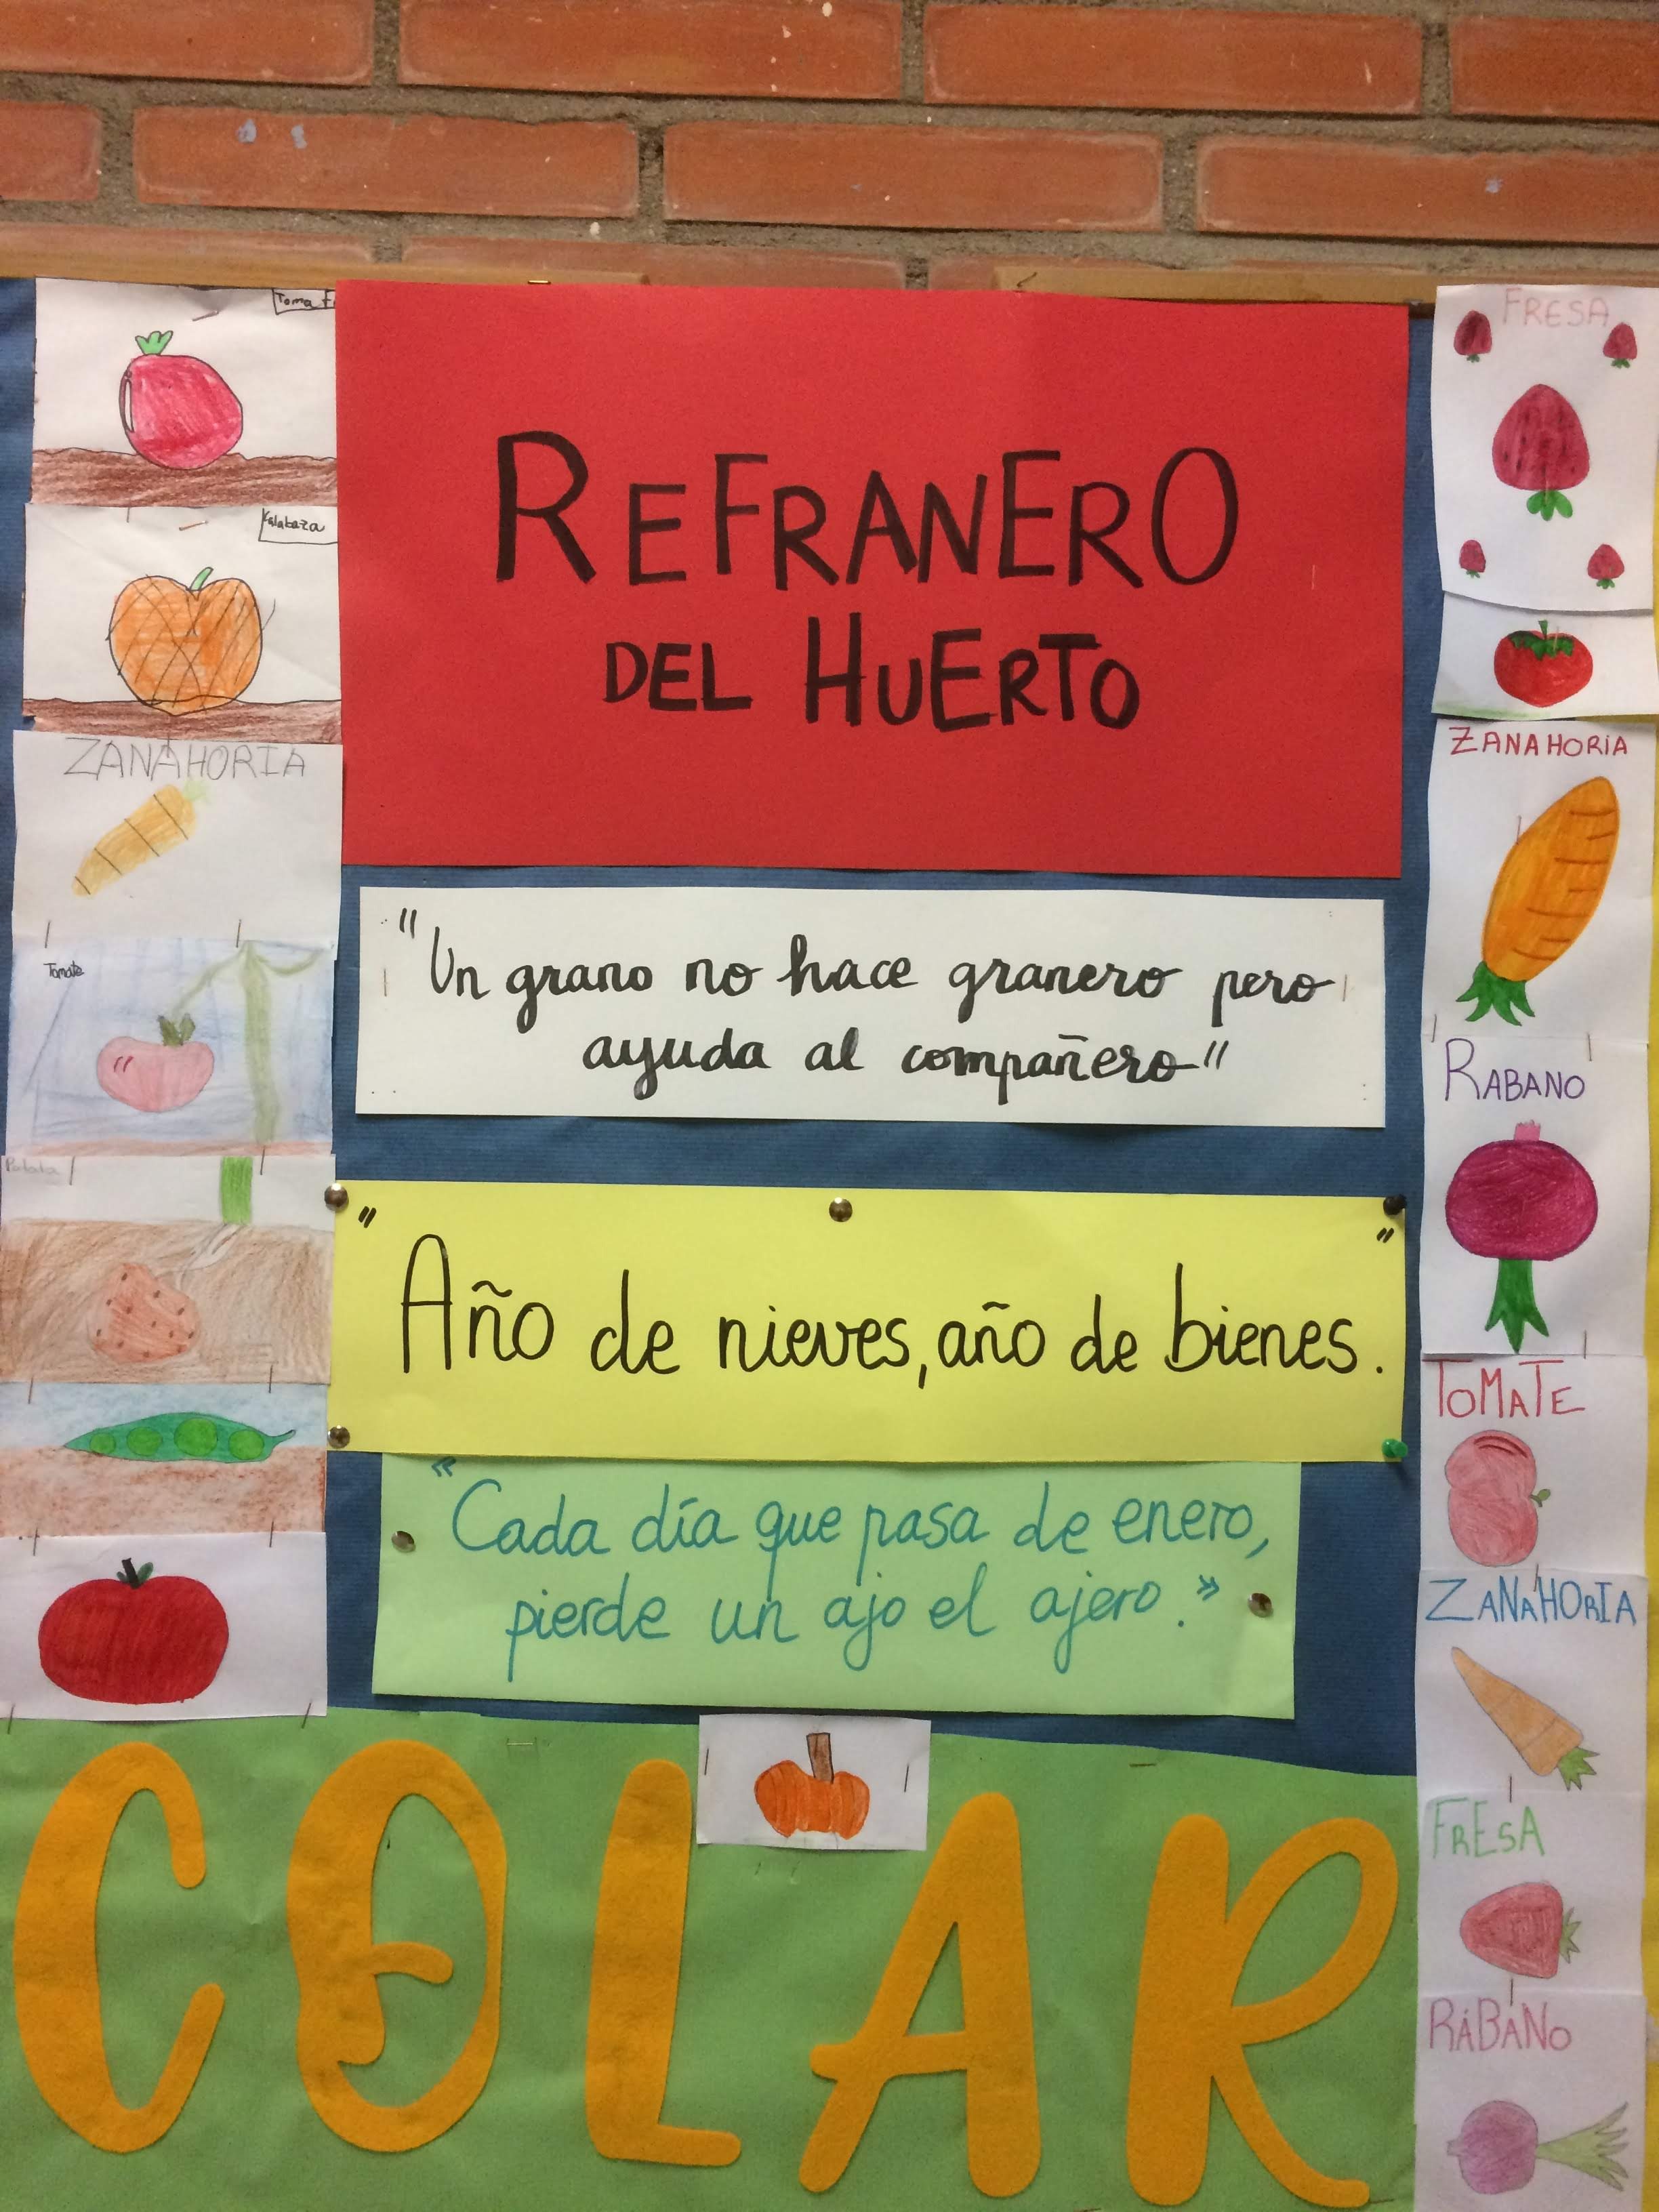 REFRANERO
DEL HUERTO
"Un grano no hace granero pero
ayuda al compañero"
"Año de nieves, año de bienes."
"Cada día que pasa de enero,
pierde un ajo el ajero."
COLAR
Toma
Kalabaza
ZANAHORIA
Tomate
Patata
FRESA
ZANAHORIA
RABANO
TOMATE
ZANAHORIA
FRESA
RÁBANO